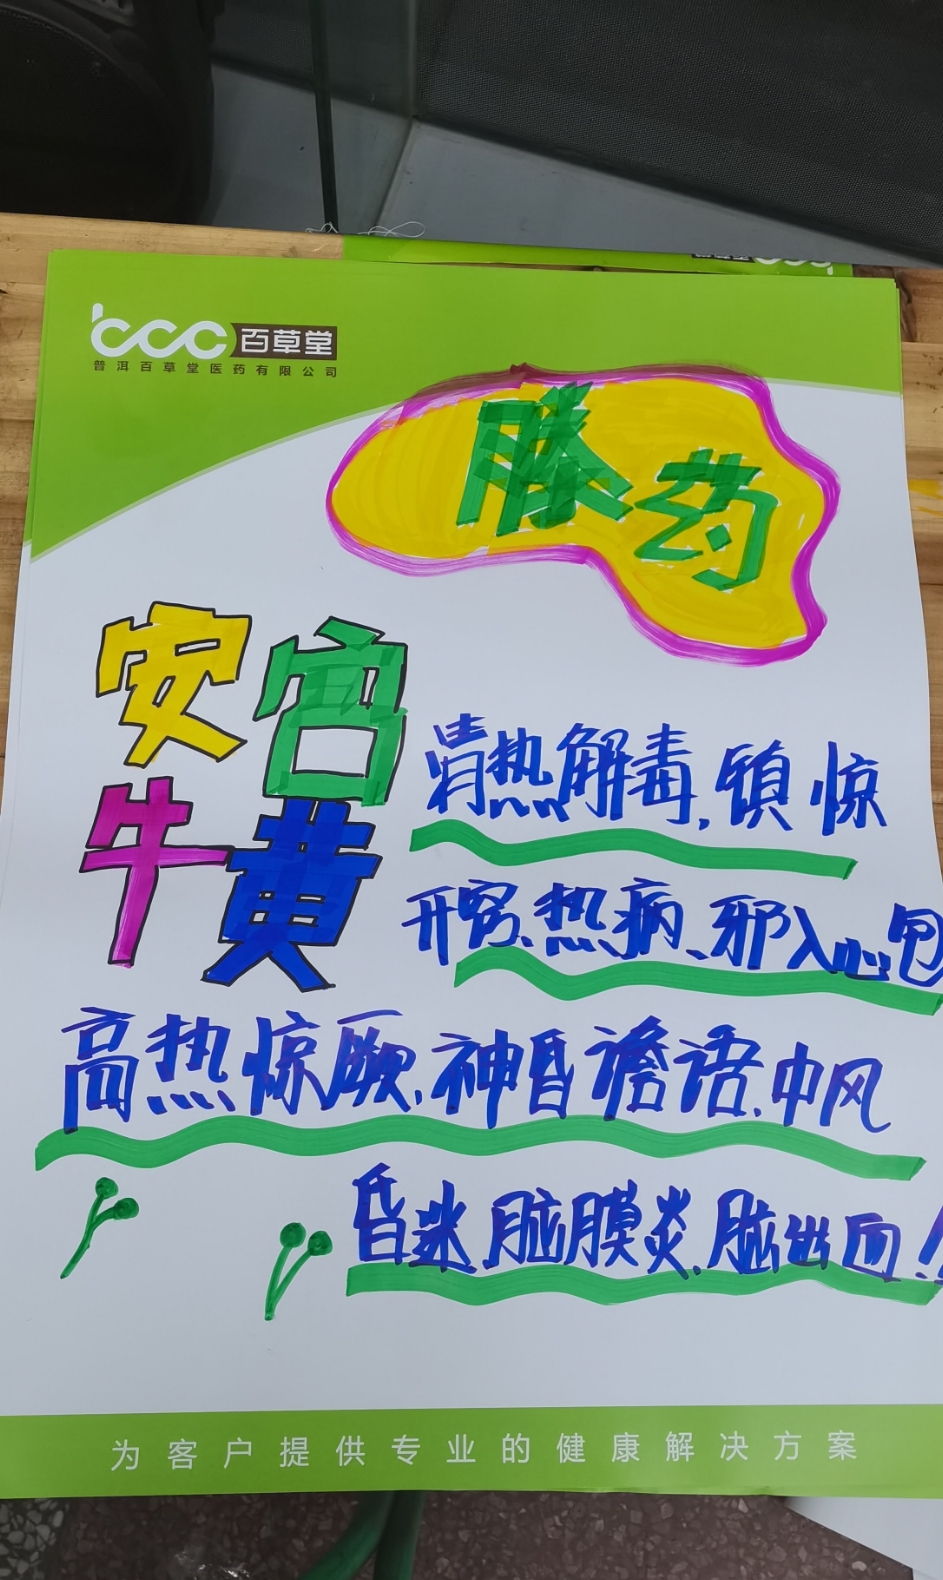 bccc百草堂
普洱百草堂医药有限公司
药
安宫
牛黄
清热解毒,镇惊
开窍、热病、邪入心包
高热惊厥、神昏谵语、中风
昏迷、脑膜炎、脑出血!
为客户提供专业的健康解决方案